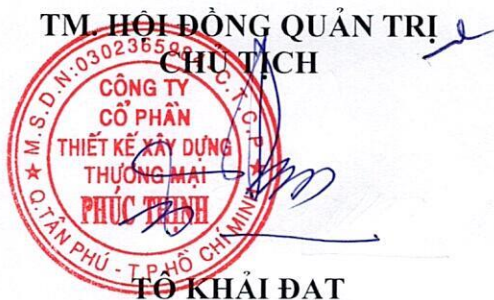 TM. HỘI ĐỒNG QUẢN TRỊ
CHỦ TỊCH
CÔNG TY
CỔ PHẦN
THIẾT KẾ XÂY DỰNG
THƯƠNG MẠI
PHÚC THỊNH
★ Q.TÂN PHÚ - T.P HỒ CHÍ MINH ★
TÔ KHẢI ĐẠT